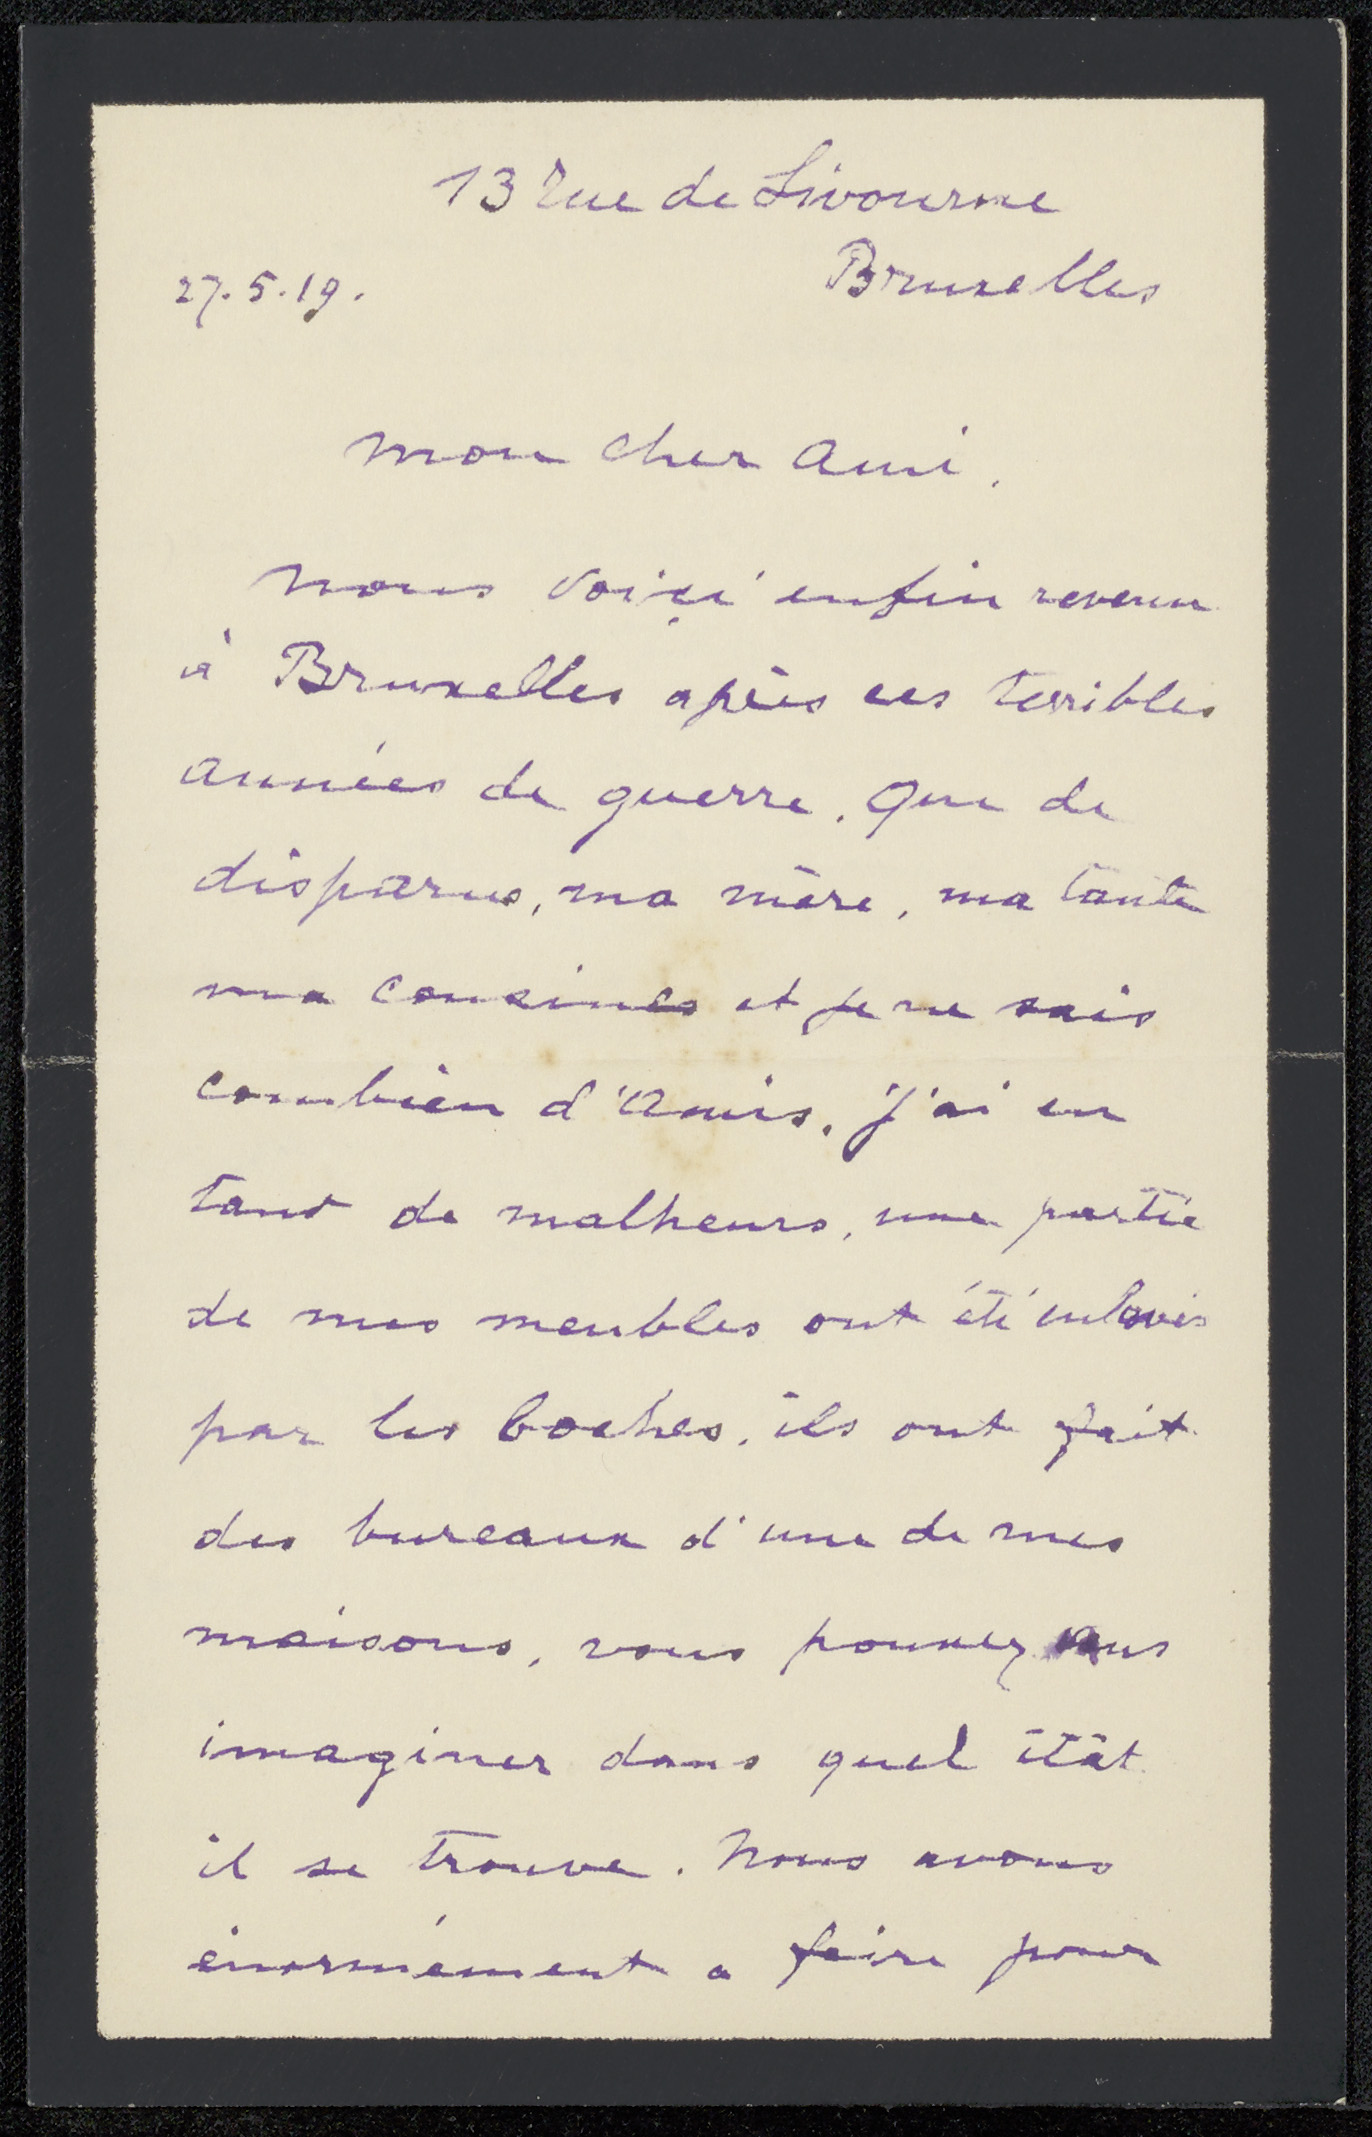 13 Rue de Livourne
Bruxelles
27.5.19.
Mon cher Ami.
Nous voici enfin revenu
à Bruxelles après ces terribles
années de guerre. Que de
disparus, ma mère, ma tante
ma cousines et je ne sais
combien d'Amis. J'ai eu
tant de malheurs, une partie
de mes meubles ont été enlevés
par les boches. ils ont fait
des bureaux d'une de mes
maisons, vous pouvez vous
imaginer dans quel ètat
il se trouve. Nous avons
énormément a faire pour